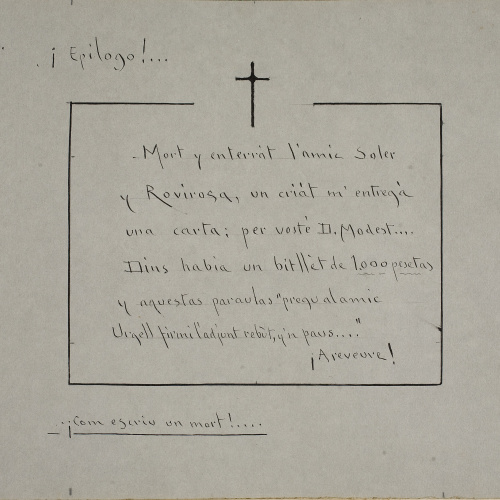 ¡Epílogo!...
-Mort y enterrát l'amic Soler
y Rovirosa, un criát m'entregà
una carta; per vosté D. Modest....
Dins habia un bitllèt de 1.000 pesetas
y aquestas paraulas "pregu'al amic
Urgell firmi l'adjunt rebùt, y'n paus...."
¡Areveure!
-¡Com escriu un mort!....